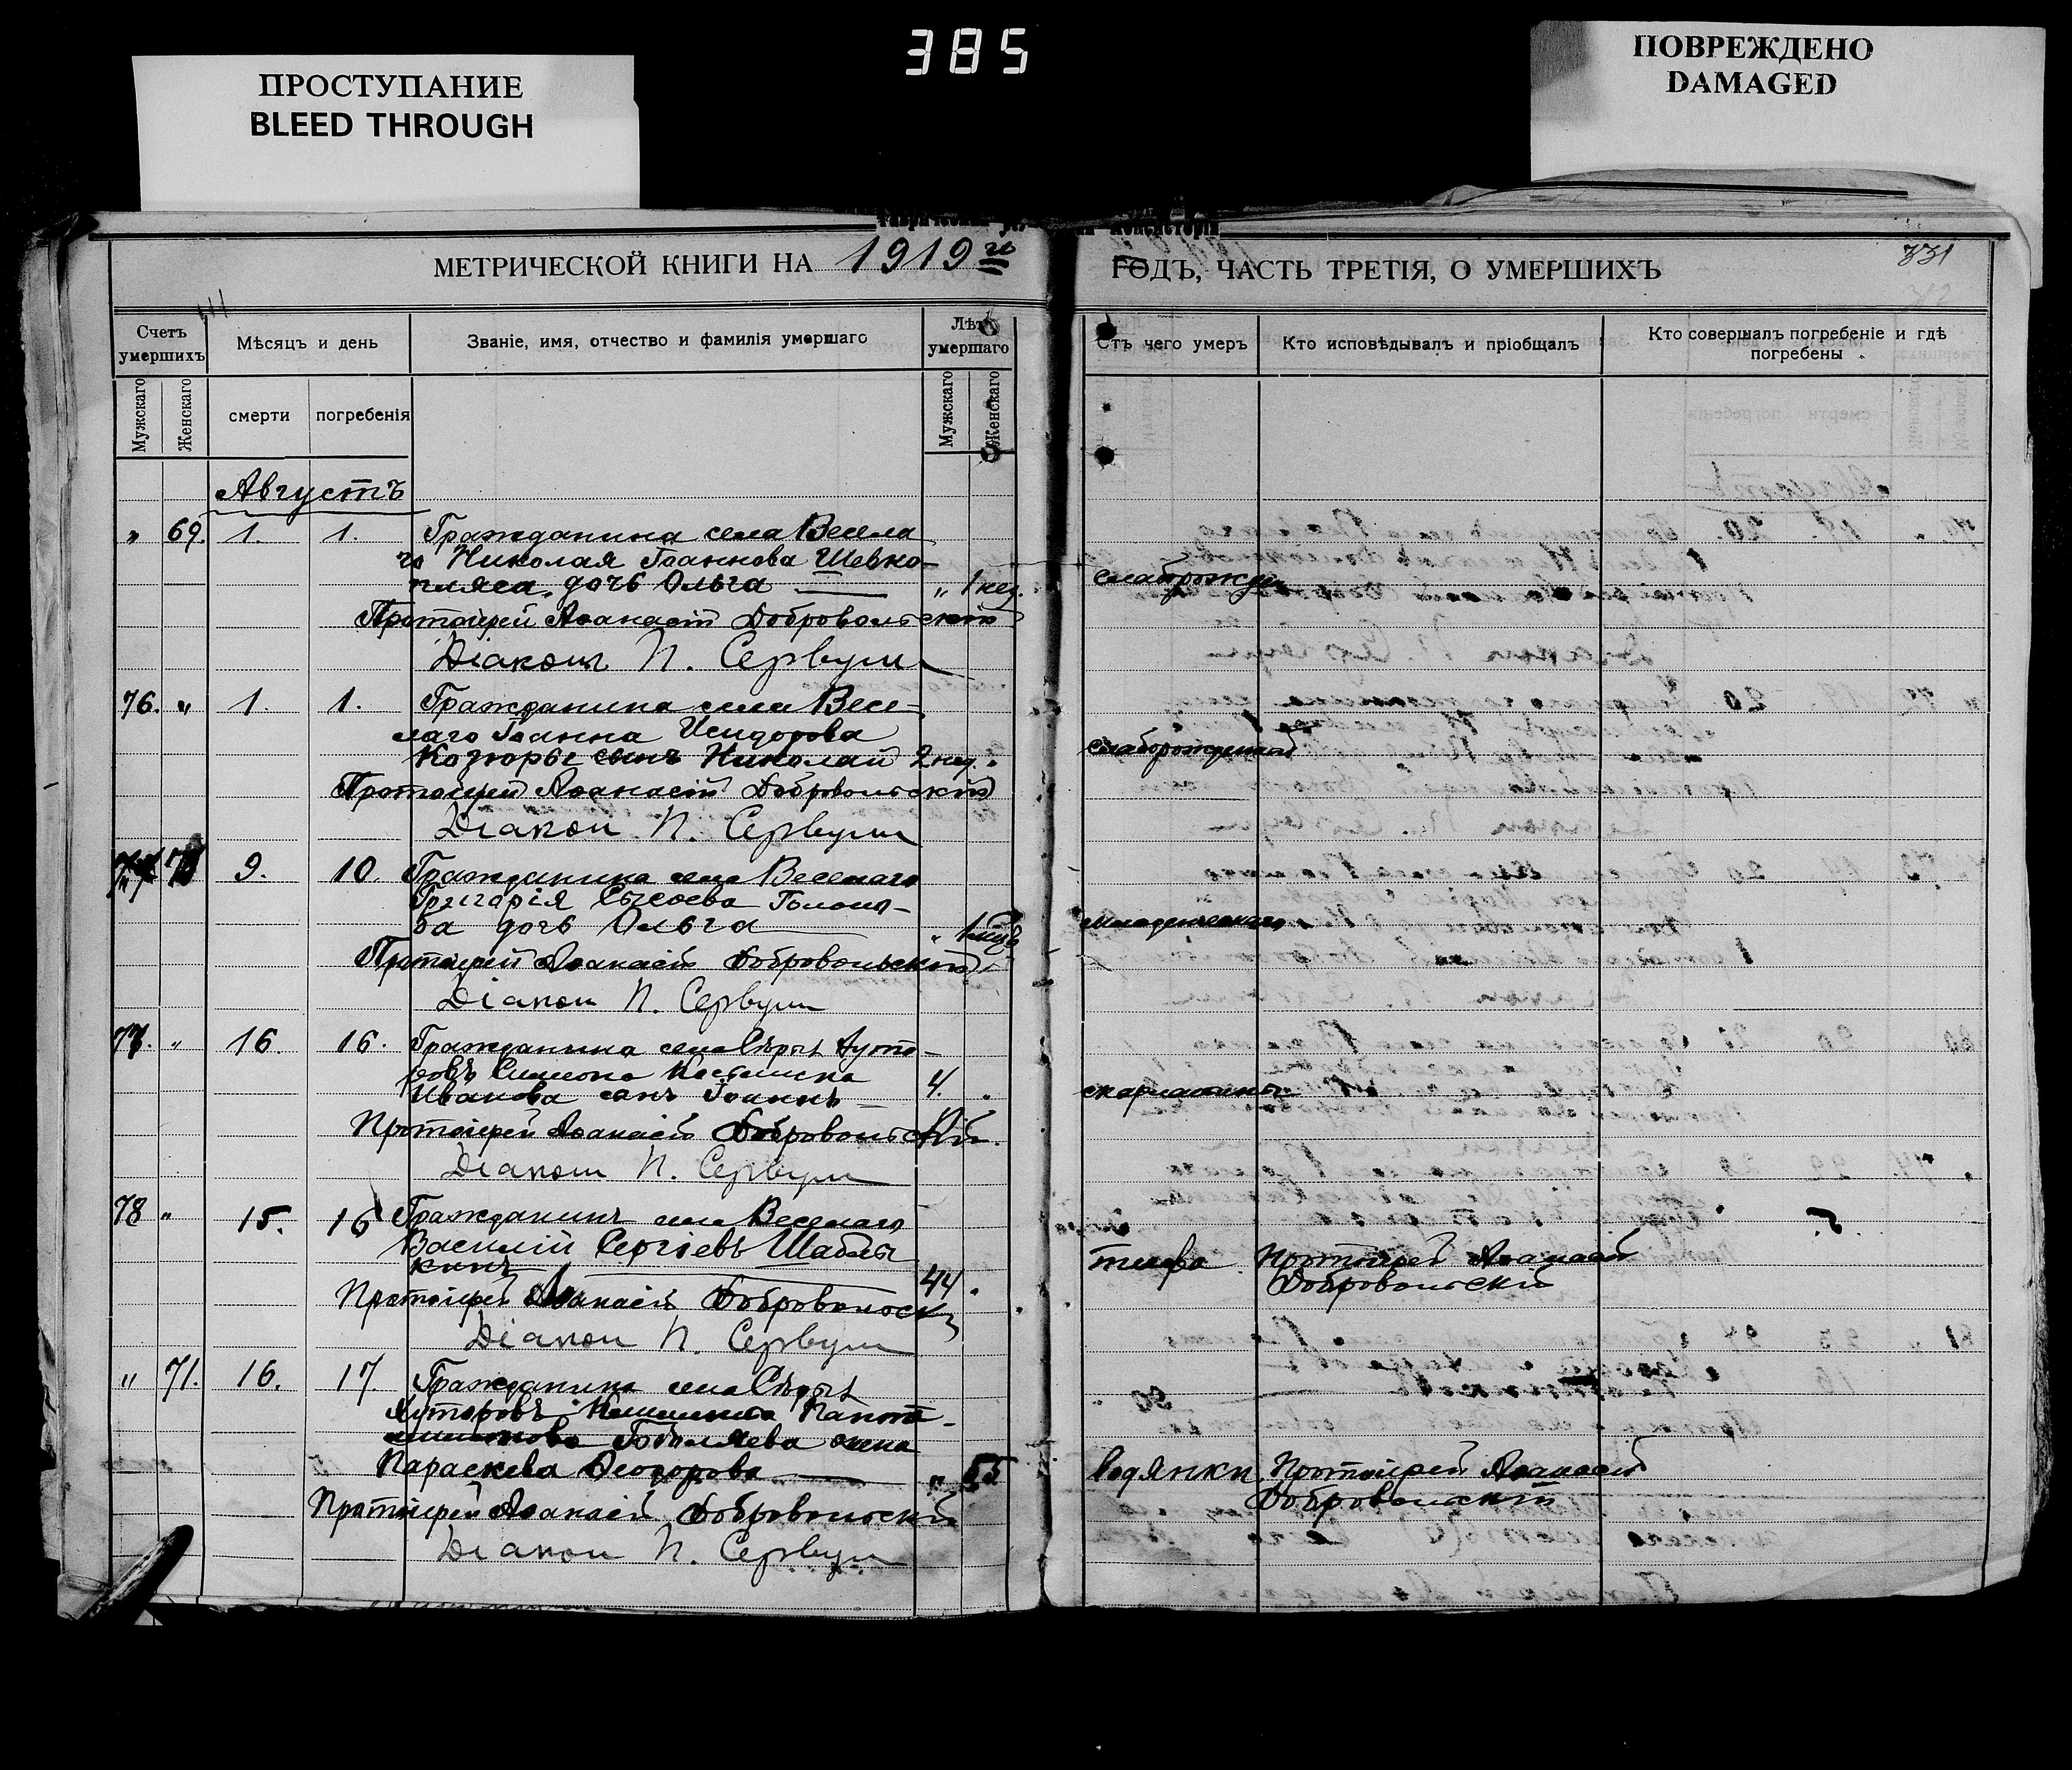 385
ПРОСТУПАНИЕ
BLEED THROUGH
ПОВРЕЖДЕНО
DAMAGED
МЕТРИЧЕСКОЙ КНИГИ НА 1919го
ГОДЪ, ЧАСТЬ ТРЕТІЯ, О УМЕРШИХЪ
331
Счетъ умершихъ
Мѣсяцъ и день
Званіе, имя, отчество и фамилія умершаго
Лѣта умершаго
Отъ чего умеръ
Кто исповѣдывалъ и пріобщалъ
Кто совершалъ погребеніе и гдѣ погребены
Мужскаго
Женскаго
смерти
погребенія
Мужскаго
Женскаго
Августъ
" 69. 1. 1. Гражданина села Весела
го Николая Іоаннова Шевко-
пляса дочь Ольга — " 1 нед. слаборожден
Протоіерей Аѳанасій Добровольскій
Діаконъ П. Сервули
76. " 1. 1. Гражданина села Весе-
лаго Іоанна Исидорова
Козюры сынъ Николай 2 нед. " слаборожденный
Протоіерей Аѳанасій Добровольскій
Діаконъ П. Сервули
9. 10. Гражданина села Веселаго
Григорія Сысоева
дочь Ольга " младенческаго
Протоіерей Аѳанасій Добровольскій
Діаконъ П. Сервули
77. " 16. 16. Гражданина села Сѣрыхъ Хуто-
ровъ Симеона
Иванова сынъ Іоаннъ 4. " скарлатины
Протоіерей Аѳанасій Добровольскій.
Діаконъ П. Сервули
78 " 15. 16 Гражданинъ села Веселаго
Василій Сергіевъ Шаблы
кинъ 44 " тифа Протоіерей Аѳанасій
Добровольскій
Протоіерей Аѳанасій Добровольскій
Діаконъ П. Сервули
" 71. 16. 17. Гражданина села Сѣрыхъ
Хуторовъ
жена
Параскева Ѳеодорова — " 55 водянки Протоіерей Аѳанасій
Добровольскій
Протоіерей Аѳанасій Добровольскій
Діаконъ П. Сервули